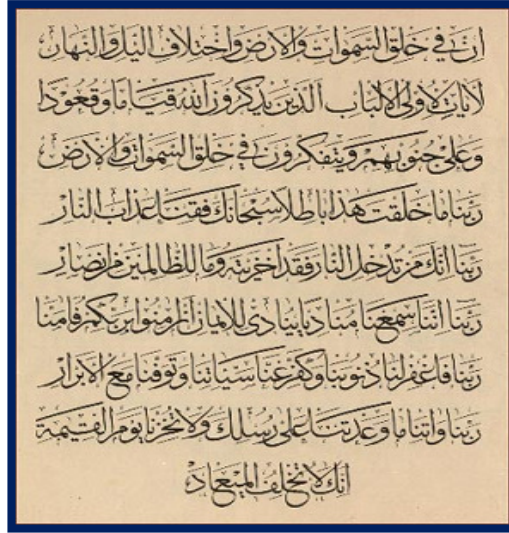 ان في خلق السموات والارض واختلاف الليل والنهار
لايات لاولى الالباب الذين يذكرون الله قياما وقعودا
وعلى جنوبهم ويتفكرون في خلق السموات والارض
ربنا ما خلقت هذا باطلا سبحانك فقنا عذاب النار
ربنا انك من تدخل النار فقد اخزيته وما للظالمين من انصار
ربنا اننا سمعنا مناديا ينادى للايمان ان امنوا بربكم فامنا
ربنا فاغفر لنا ذنوبنا وكفر عنا سياتنا وتوفنا مع الابرار
ربنا واتنا ما وعدتنا على رسلك ولا تخزنا يوم القيمة
انك لا تخلف الميعاد